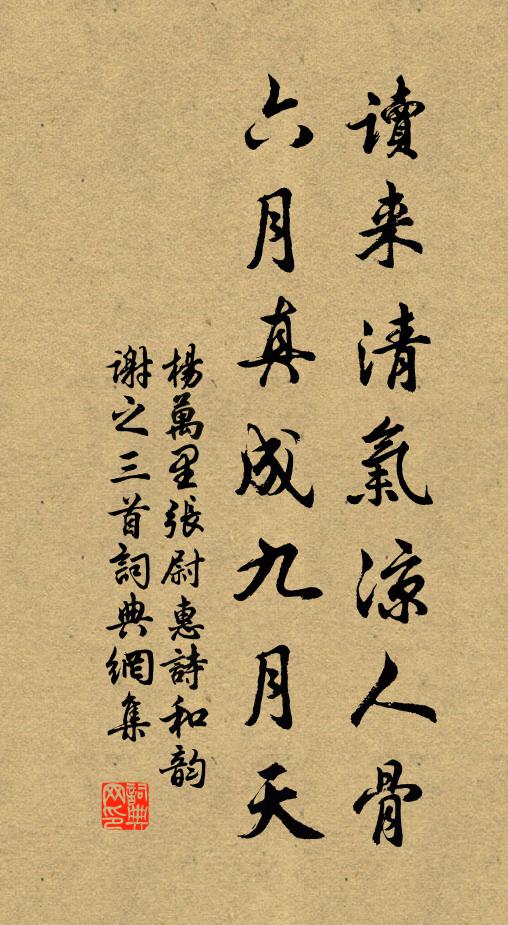 讀来清氣涼人骨
六月真成九月天
楊萬里張尉惠詩和韵
謝之三首詞典網集
詞典網印